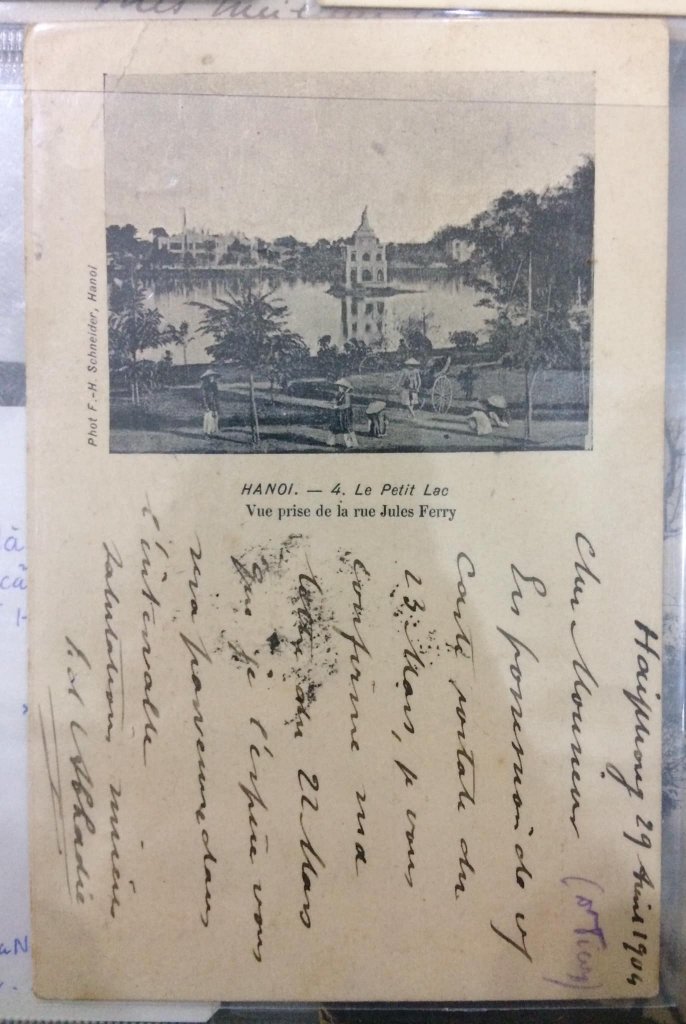 Phot F.-H. Schneider, Hanoi
HANOI. — 4. Le Petit Lac
Vue prise de la rue Jules Ferry
Haiphong 29 Avril 1904
Cher Monsieur
En possession de v/
carte postale du
23 Mars, je vous
confirme ma
lettre du 22 Mars
que je l'espère vous
sera parvenue dans
l'intervalle
salutations